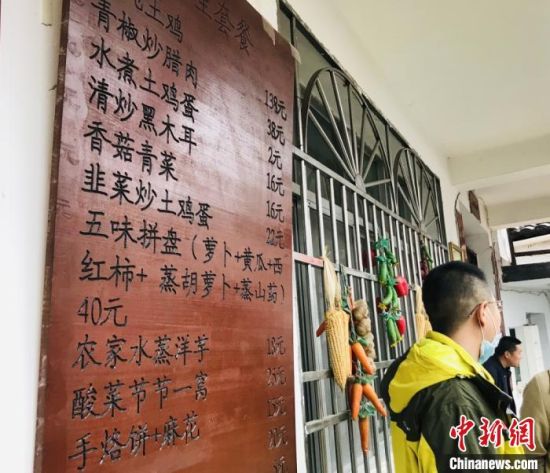 套餐
土鸡 138元
青椒炒腊肉 38元
水煮土鸡蛋 2元
清炒黑木耳 16元
香菇青菜 16元
韭菜炒土鸡蛋 22元
五味拼盘（萝卜+黄瓜+西
红柿+蒸胡萝卜+蒸山药）
40元
农家水蒸洋芋 18元
酸菜节节一窝
手烙饼+麻花
中新网
Chinanews.com